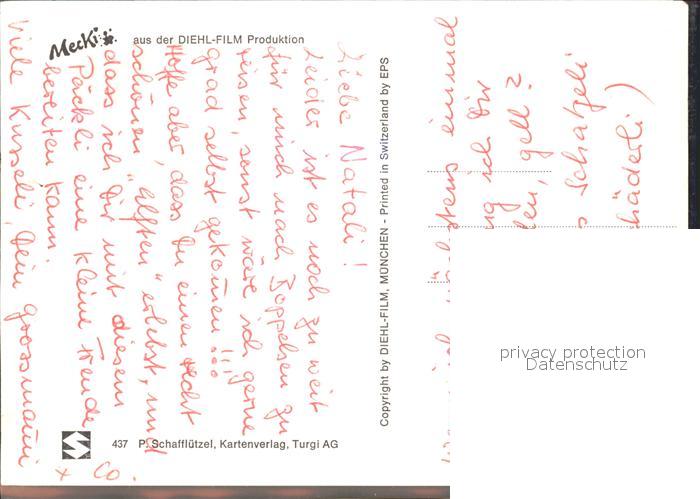 Mecki
aus der DIEHL-FILM Produktion
Liebe Natali!
Leider ist es noch zu weit
für mich nach Boppelsen zu
reisen, sonst wäre ich gerne
grad selbst gekommen!!!
Hoffe aber, dass Du einen recht
schönen "elften" erlebst, und
dass ich Dir mit diesem
Päckli eine kleine Freude
bereiten kann.
Viele Küsseli, Dein Grossmami
Copyright by DIEHL-FILM, MÜNCHEN - Printed in Switzerland by EPS
437 P. Schafflützel, Kartenverlag, Turgi AG
einmal
ich Dir
gell?
Schatzeli
privacy protection
Datenschutz